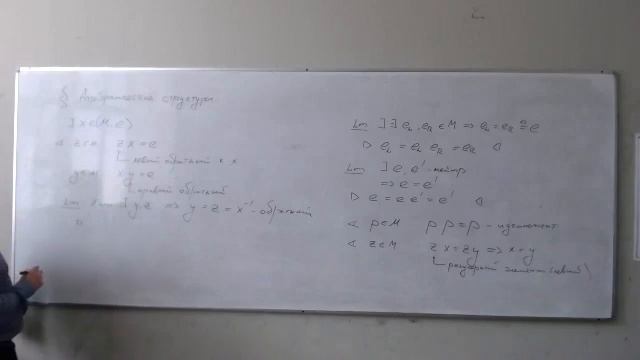 § Алгебраические структуры
∃ x ∈ (M, e)
◁ z ∈ M z x = e
левый обратный к x
y ∈ M x y = e
правый обратный
Lm ∃ y, z ⇒ y = z = x⁻¹ - обратный
Lm ∃ ∃ e_L, e_R ∈ M ⇒ e_L = e_R ≝ e
▷ e_L = e_L e_R = e_R ◁
Lm ∃ e, e' - нейтр
⇒ e = e'
▷ e = e e' = e' ◁
◁ p ∈ M p p = p - идемпотент
◁ z ∈ M z x = z y ⇒ x = y
регулярный элемент (левый)